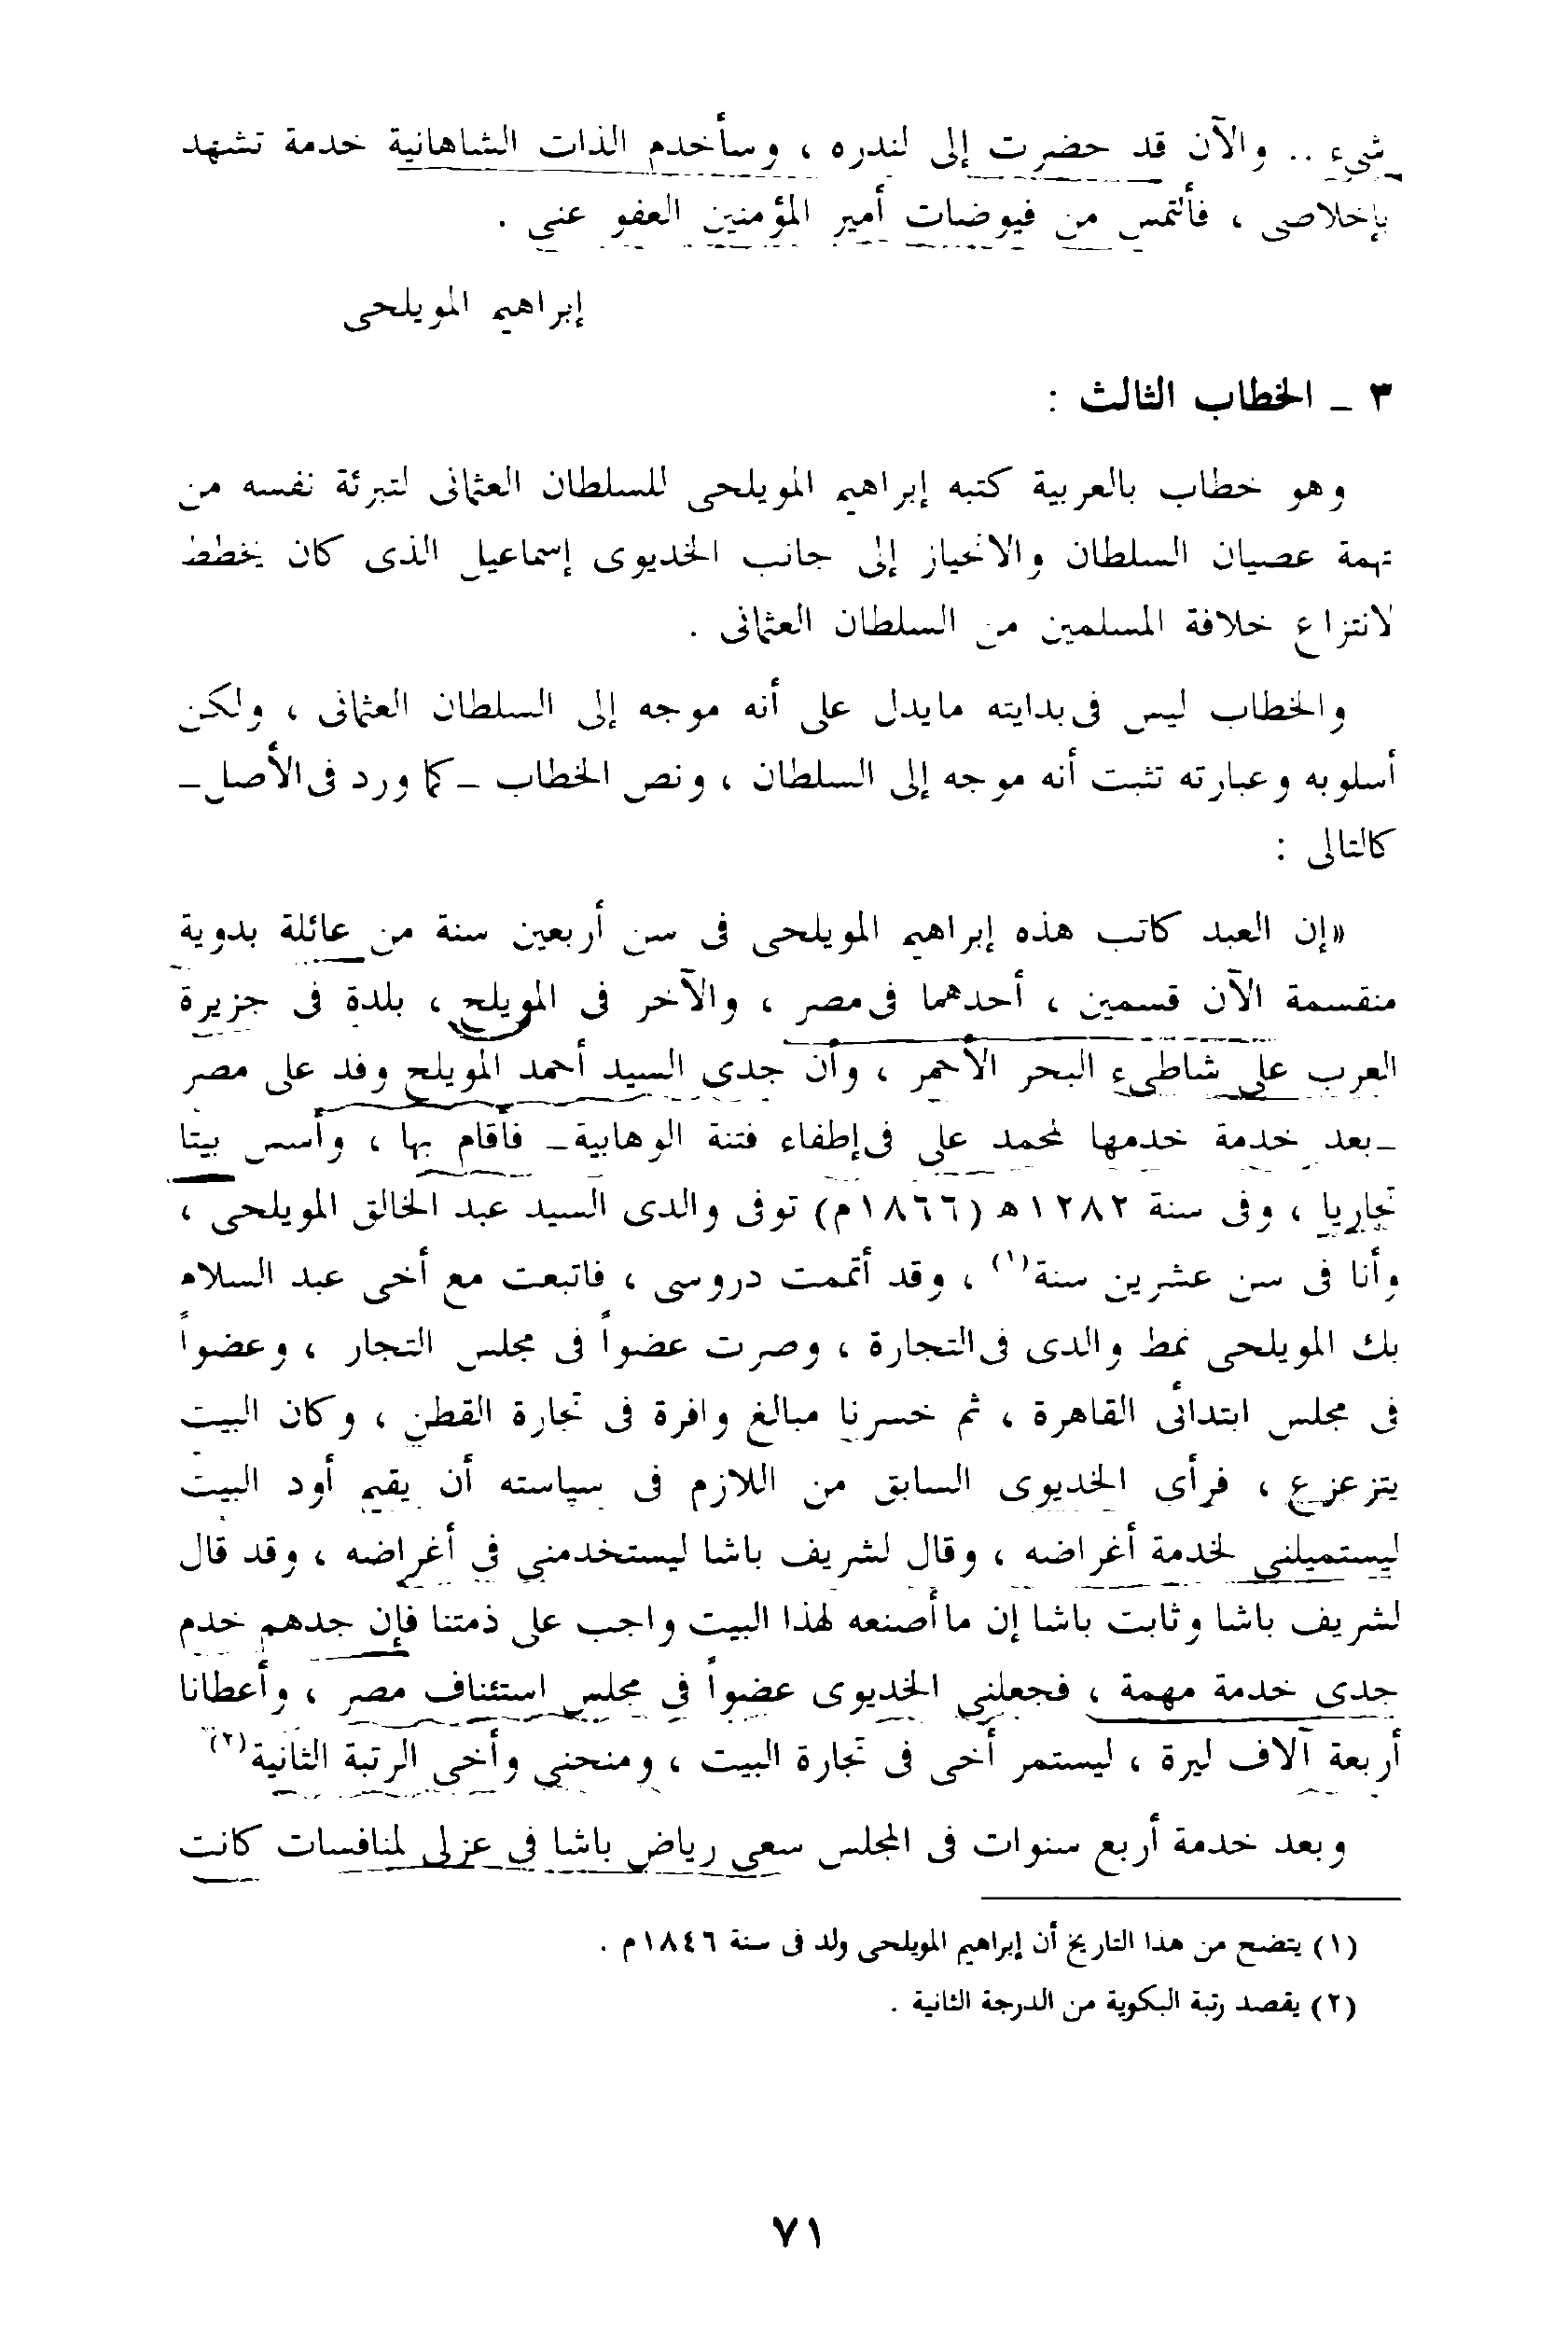 شىء .. والآن قد حضرت إلى لندره ، وسأخدم الذات الشاهانية خدمة تشهد
بإخلاصى ، فألتمس من فيوضات أمير المؤمنين العفو عنى .
إبراهيم المويلحى
٣ ـ الخطاب الثالث :
وهو خطاب بالعربية كتبه إبراهيم المويلحى للسلطان العثمانى لتبرئة نفسه من
تهمة عصيان السلطان والانحياز إلى جانب الخديوى إسماعيل الذى كان يخطط
لانتزاع خلافة المسلمين من السلطان العثمانى .
والخطاب ليس فى بدايته مايدل على أنه موجه إلى السلطان العثمانى ، ولكن
أسلوبه وعبارته تثبت أنه موجه إلى السلطان ، ونص الخطاب ـ كما ورد فى الأصل ـ
كالتالى :
«إن العبد كاتب هذه إبراهيم المويلحى فى سن أربعين سنة من عائلة بدوية
منقسمة الآن قسمين ، أحدهما فى مصر ، والآخر فى المويلح ، بلدة فى جزيرة
العرب على شاطىء البحر الأحمر ، وأن جدى السيد أحمد المويلح وفد على مصر
ـ بعد خدمة خدمها لمحمد على فى إطفاء فتنة الوهابية ـ فأقام بها ، وأسس بيتا
تجاريا ، وفى سنة ١٢٨٢هـ (١٨٦٦م) توفى والدى السيد عبد الخالق المويلحى ،
وأنا فى سن عشرين سنة(١) ، وقد أتممت دروسى ، فاتبعت مع أخى عبد السلام
بك المويلحى نمط والدى فى التجارة ، وصرت عضواً فى مجلس التجار ، وعضواً
فى مجلس ابتدائى القاهرة ، ثم خسرنا مبالغ وافرة فى تجارة القطن ، وكان البيت
يتزعزع ، فرأى الخديوى السابق من اللازم فى سياسته أن يقيم أود البيت
ليستميلنى لخدمة أغراضه ، وقال لشريف باشا ليستخدمنى فى أغراضه ، وقد قال
لشريف باشا وثابت باشا إن ماأصنعه لهذا البيت واجب على ذمتنا فإن جدهم خدم
جدى خدمة مهمة ، فجعلنى الخديوى عضواً فى مجلس استئناف مصر ، وأعطانا
أربعة آلاف ليرة ، ليستمر أخى فى تجارة البيت ، ومنحنى وأخى الرتبة الثانية(٢)
وبعد خدمة أربع سنوات فى المجلس سعى رياض باشا فى عزلى لمنافسات كانت
(١) يتضح من هذا التاريخ أن إبراهيم المويلحى ولد فى سنة ١٨٤٦م .
(٢) يقصد رتبة البكوية من الدرجة الثانية .
٧١